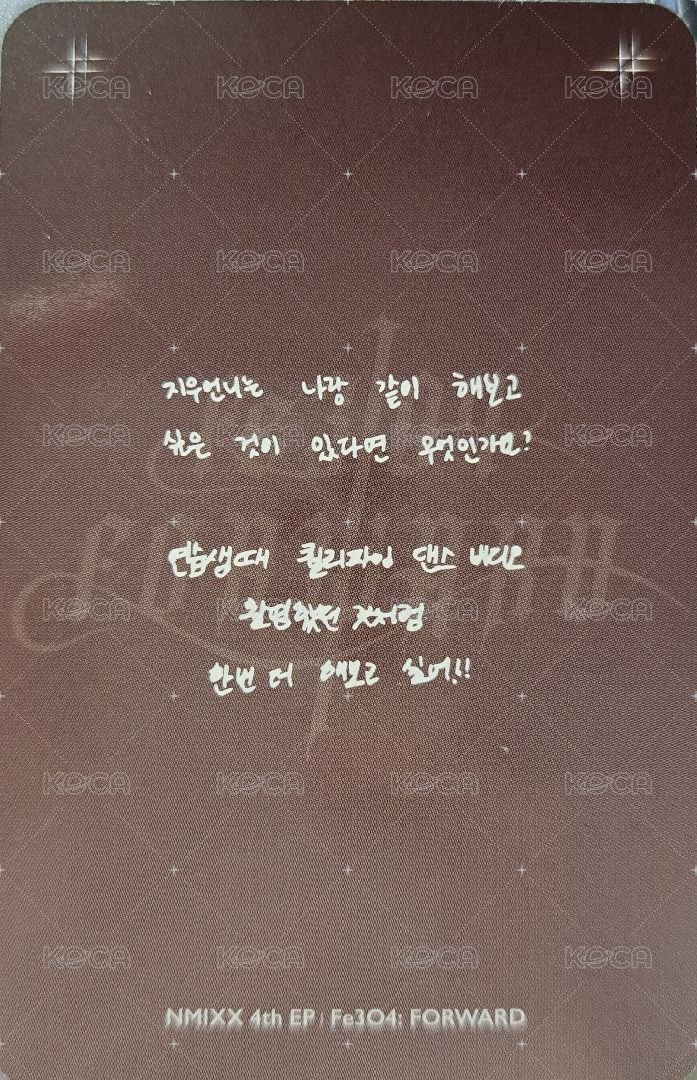 KOCA KOCA KOCA KOCA
KOCA KOCA KOCA KOCA
지우언니는 나랑 같이 해보고
KOCA KOCA KOCA KOCA
싶은 것이 있다면 무엇인가요?
연습생때 퀄리파잉 댄스 비디오
촬영했던 것처럼
KOCA KOCA KOCA KOCA
한번 더 해보고 싶어!!
KOCA KOCA KOCA KOCA
KOCA KOCA KOCA KOCA
NMIXX 4th EP | Fe3O4: FORWARD